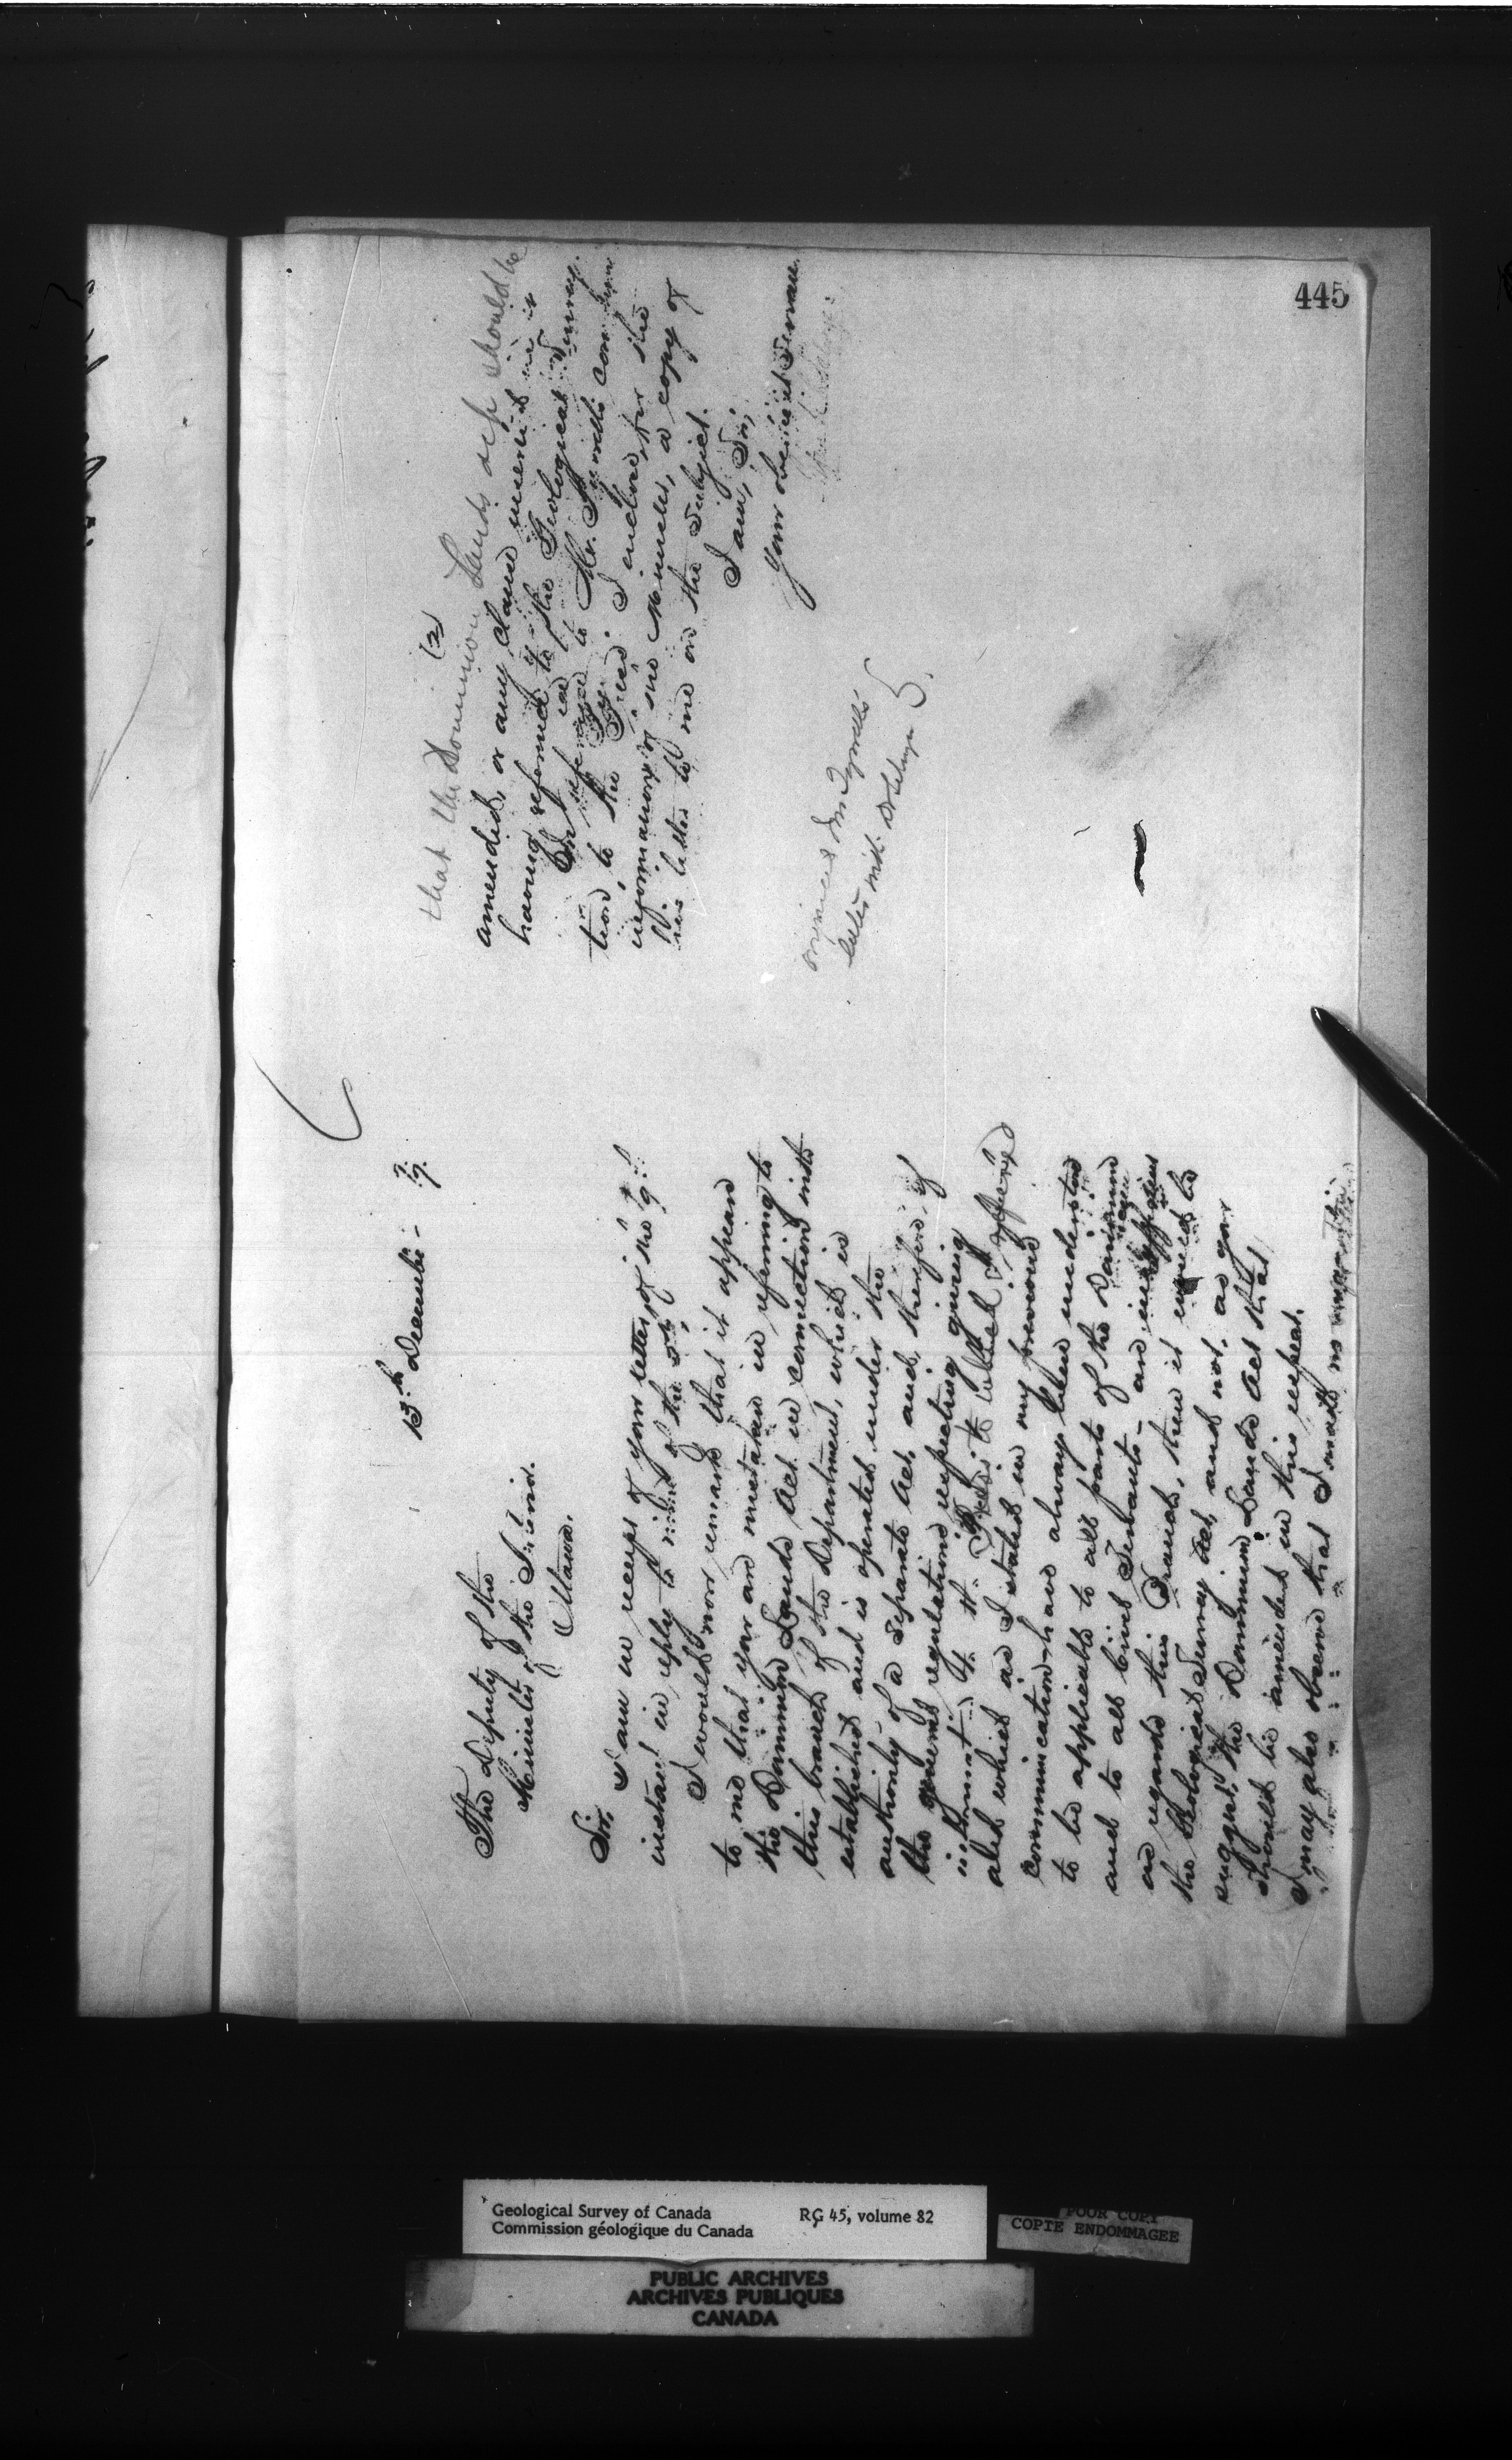 445
13th December - 7.
The Deputy of the
Minister of the Interior.
Ottawa.
Sir,
I am in receipt of your letter of the 9th
instant in reply to mine of the
I would now remark that it appears
to me that you are mistaken in referring to
the Dominion Lands Act in connection with
this branch of the Department, which is
established and is operated under the
authority of a separate Act, and, therefore, if
the general regulations respecting
to which I referred
and which as I stated in my previous
communication have always been understood
to be applicable to all parts of the Dominion
and to all Civil Servants - are
as regards this Branch, then it would be
the Geological Survey Act, and not, as you
suggest, the Dominion Lands Act that
should be amended in this respect.
I may also observe that I made no
(2)
that the Dominion Lands Act should be
amended, or any clause inserted in it
having reference to the Geological Survey.
In reference to Mr. Tyrrell's
tion, to the I enclose for the
information of the Minister, a copy of
his letter to me on the subject.
I am, Sir,
Your obedient Servant.
original Mr Tyrrell's
letter with
Geological Survey of Canada
Commission géologique du Canada
RG 45, volume 82
POOR COPY
COPIE ENDOMMAGEE
PUBLIC ARCHIVES
ARCHIVES PUBLIQUES
CANADA